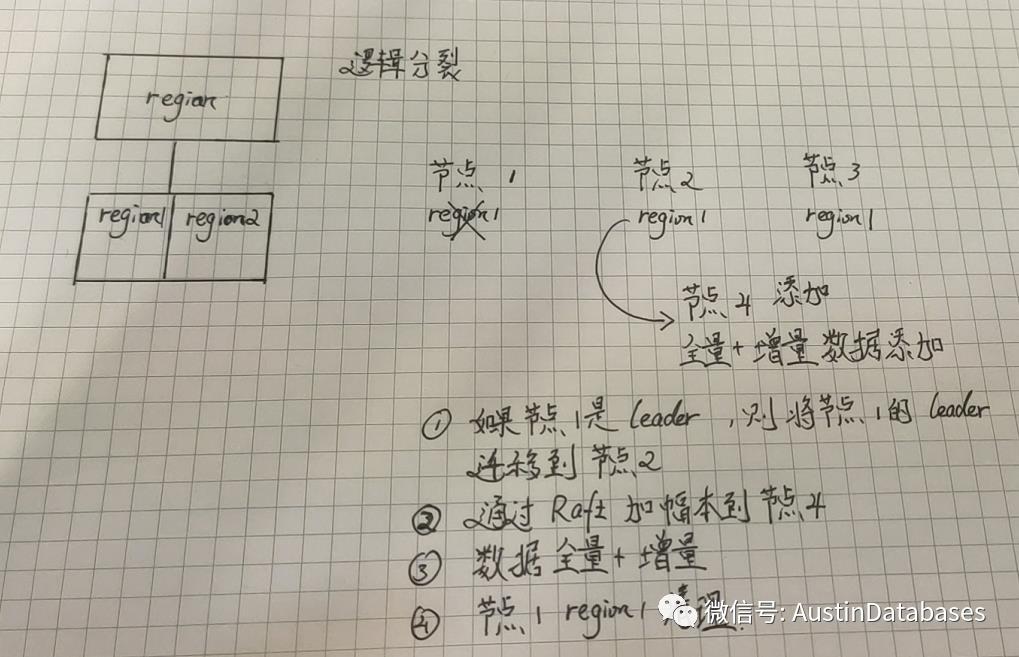 逻辑分裂
region
region1 region2
节点1 节点2 节点3
region1 region1 region1
节点4 添加
全量+增量数据添加
① 如果节点1是leader,则将节点1的leader
迁移到节点2
② 通过Raft加幅本到节点4
③ 数据全量+增量
④ 节点1 region1
微信号: AustinDatabases